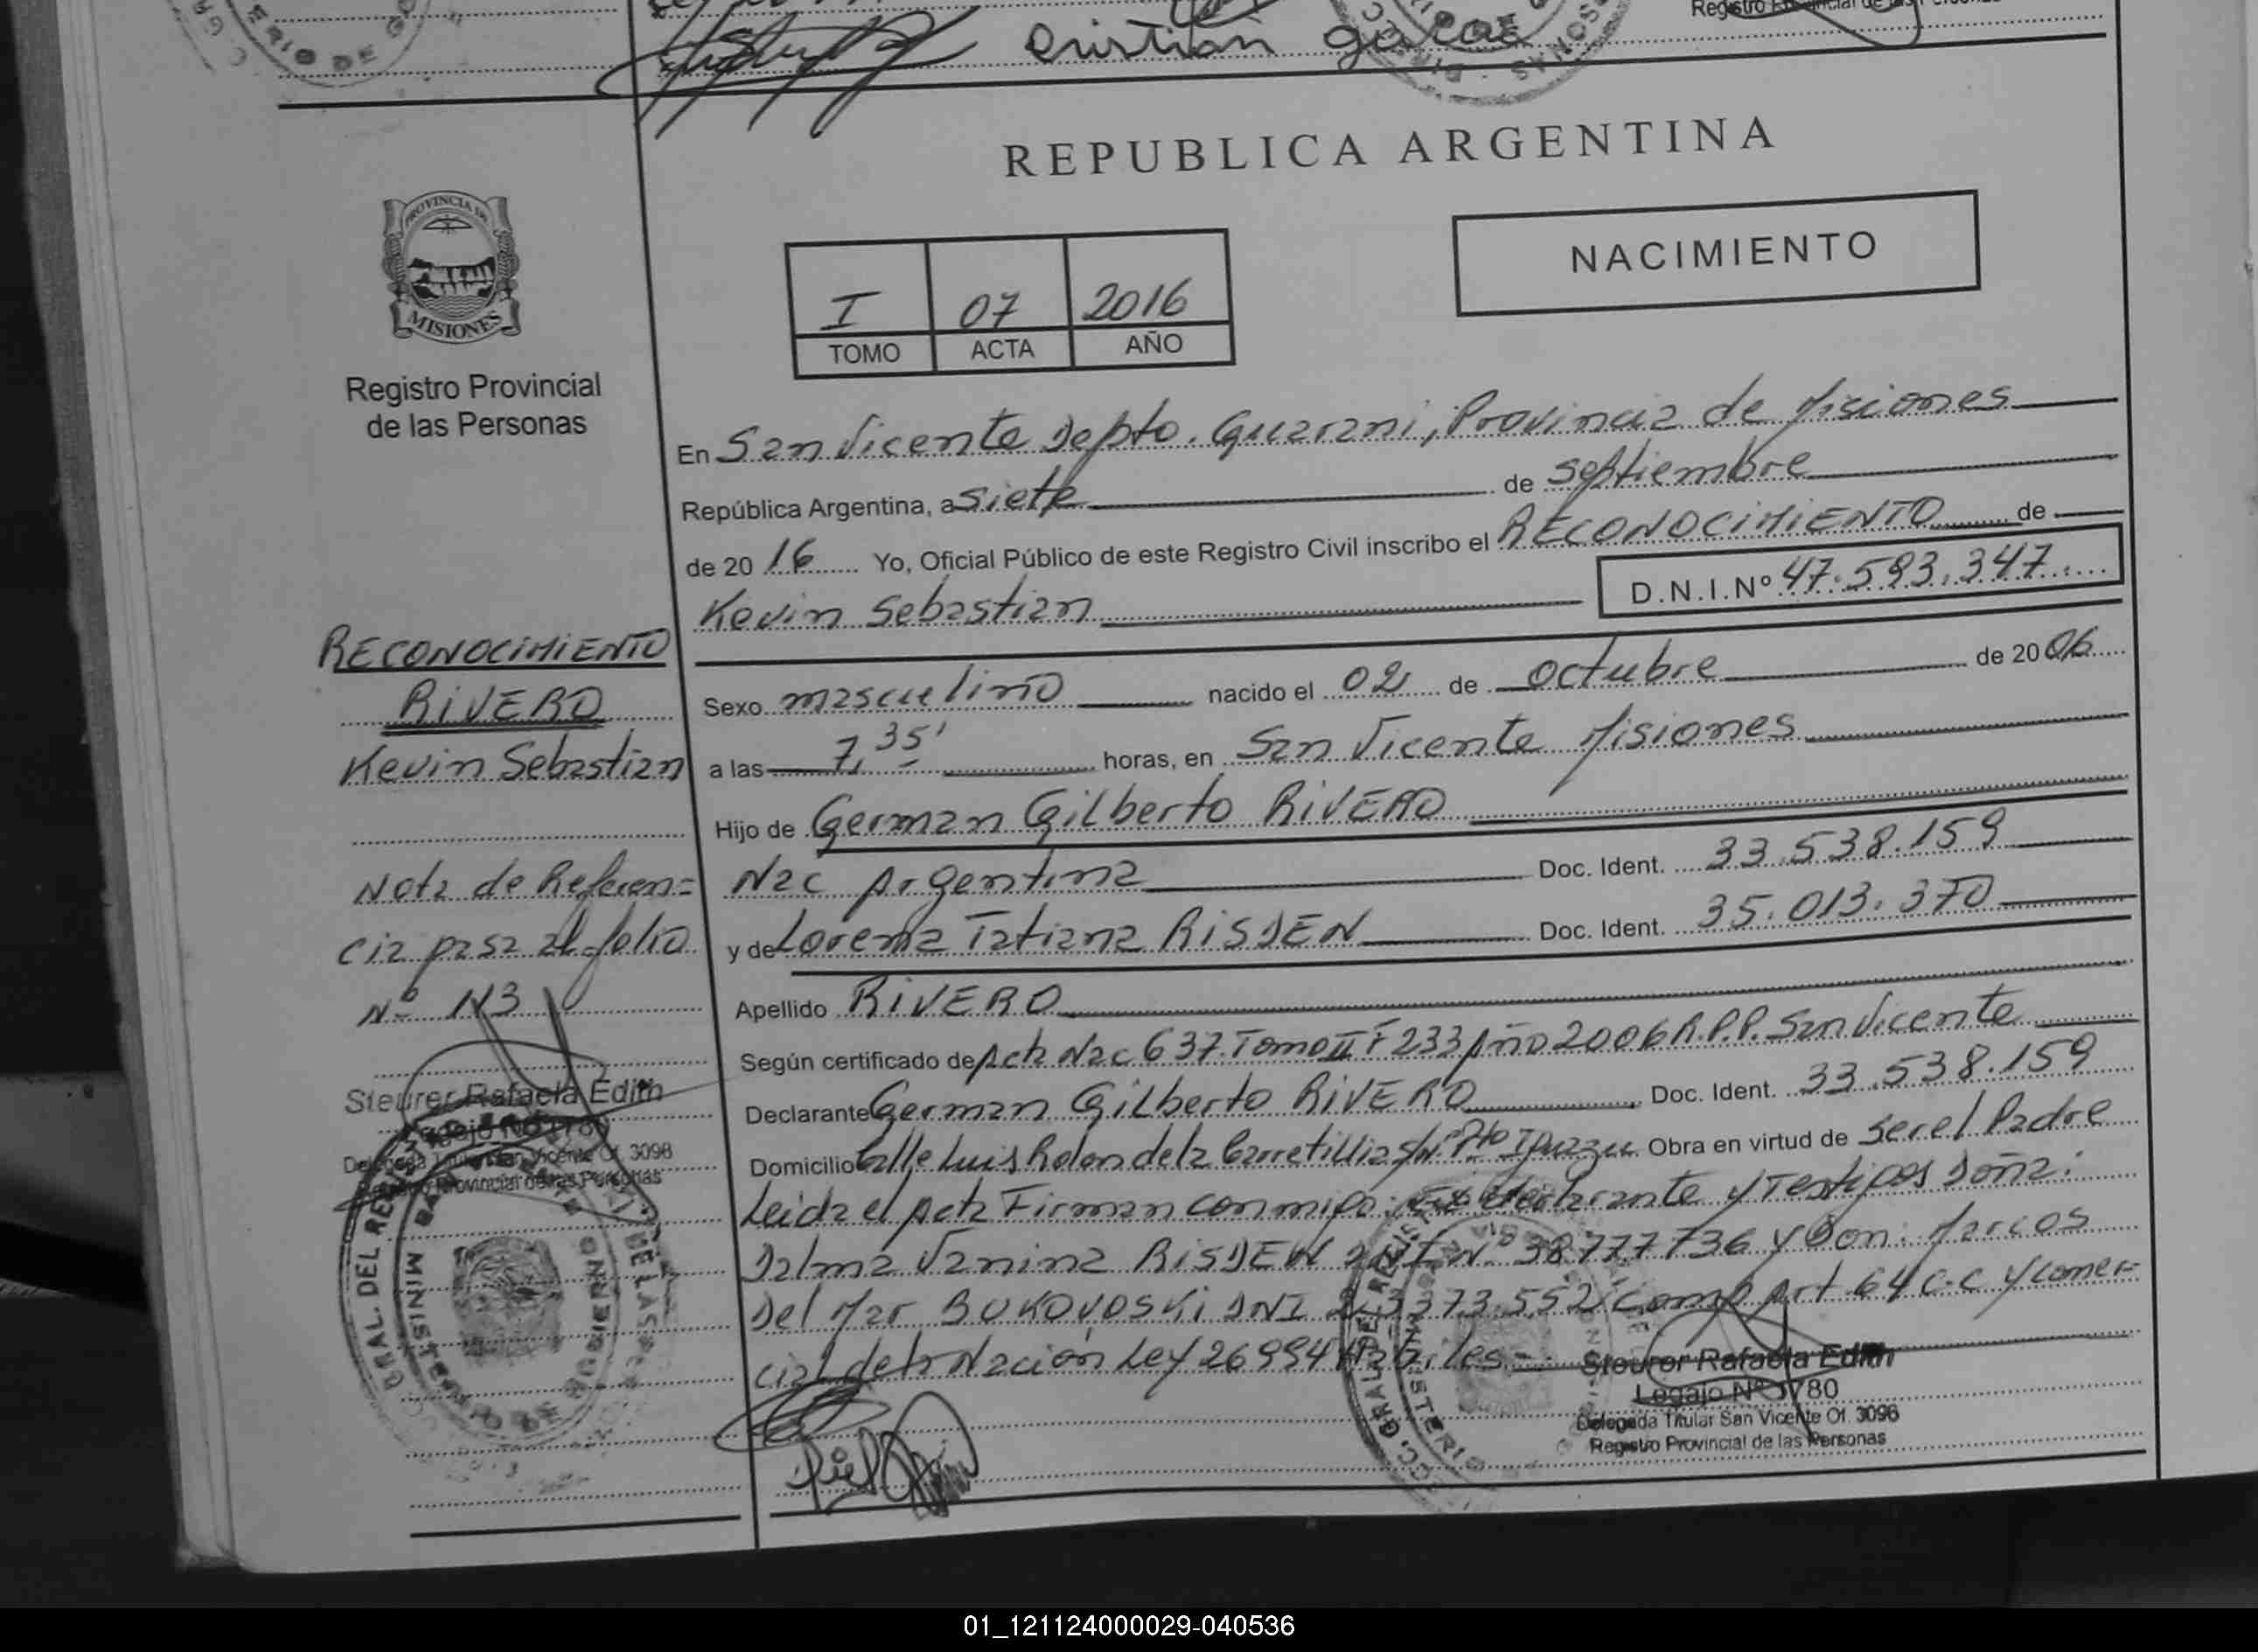 Cristian
REPUBLICA ARGENTINA
PROVINCIA DE
MISIONES
Registro Provincial
de las Personas
NACIMIENTO
I 07 2016
TOMO ACTA AÑO
En San Vicente Depto. Guarani, Provincia de Misiones
República Argentina, a siete de septiembre
de 20 16 Yo, Oficial Público de este Registro Civil inscribo el RECONOCIMIENTO de
Kevin Sebastian D.N.I.Nº 47.593.347
Sexo masculino nacido el 02 de octubre de 20 06
a las 7,35' horas, en San Vicente Misiones
Hijo de German Gilberto RIVERO
Nac Argentina Doc. Ident. 33.538.159
y de Lorena Tatiana RISDEN Doc. Ident. 35.013.370
Apellido RIVERO
Según certificado de Acta Nac 637 Tomo II Fº 233 Año 2006 R.P.P. San Vicente
Declarante German Gilberto RIVERO Doc. Ident. 33.538.159
Domicilio Calle Luis Rolon de la Carretilla S/Nº Pto Iguazu Obra en virtud de ser el Padre
Leida el Acta Firman conmigo: declarante y Testigos Doña:
Dalma Vanina RISDEN DNI Nº 38777736 y Don: Marcos
Del Mar BUKOVOSKI DNI Art 64 C.C y comer=
cial de la Nación Ley 26994 Habiles-
Steurer Rafaela Edith
Legajo Nº 1780
Delegada Titular San Vicente Of. 3096
Registro Provincial de las Personas
RECONOCIMIENTO
RIVERO
Kevin Sebastian
Nota de Referen=
cia pasa al folio
Nº 113
Steurer Rafaela Edith
Legajo Nº 1780
Delegada Titular San Vicente Of. 3096
Registro Provincial de las Personas
01_121124000029-040536